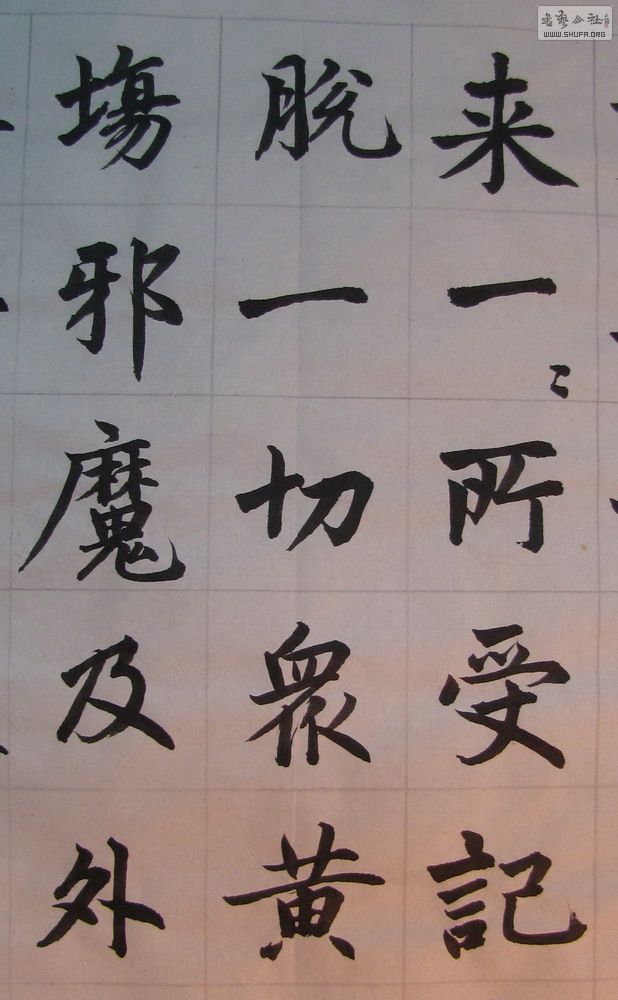 来一〻所受記
脱一切衆黄
塲邪魔及外
書藝公社
WWW.SHUFA.ORG